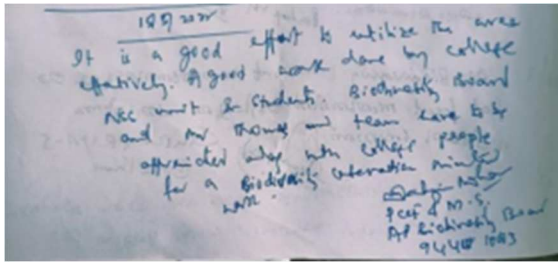 It is a good effort to utilize the area
effatively. A good work done by college
NSS unit & students. Biodiversity Board
and Mr Thomas and team have to be
appreciated along with college people
for a Biodiversity conservation minded
work.
PCCF & M.S.
AP Biodiversity Board